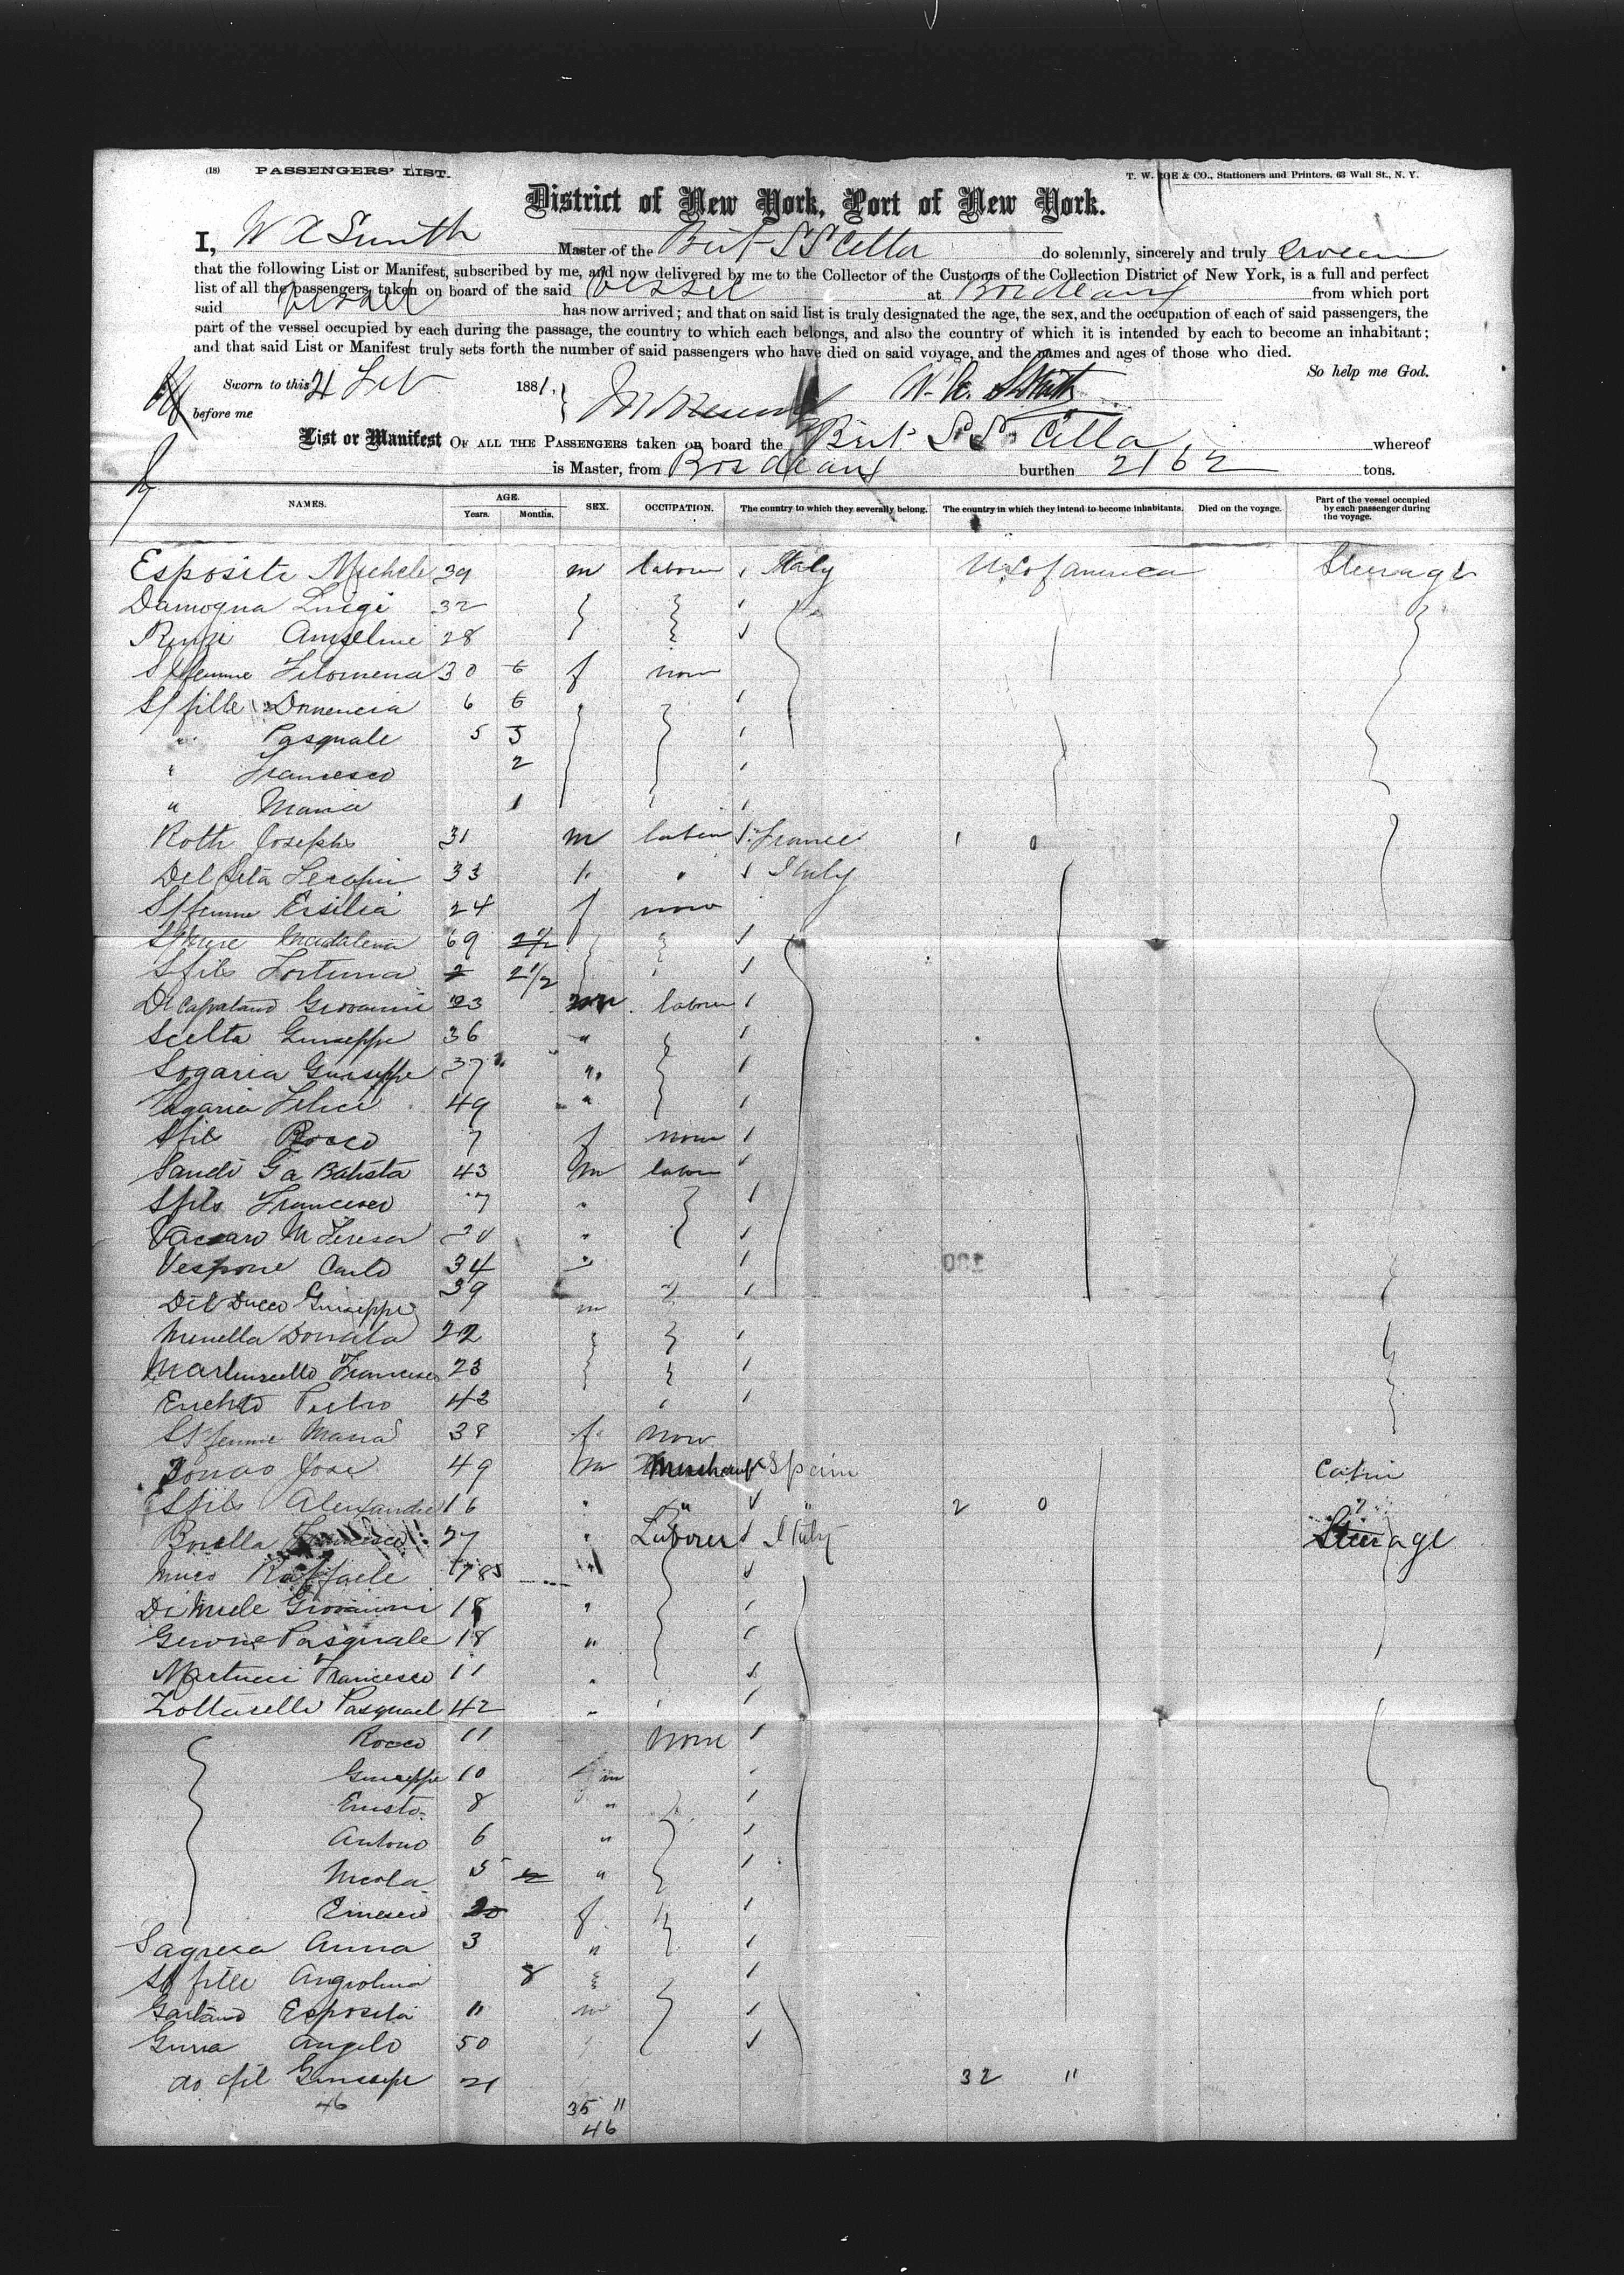 (18) PASSENGERS' LIST. T. W. ROE & CO., Stationers and Printers, 63 Wall St., N. Y.
District of New York, Port of New York.
I, W A Smith Master of the Brit S S Cella do solemnly, sincerely and truly swear
that the following List or Manifest, subscribed by me, and now delivered by me to the Collector of the Customs of the Collection District of New York, is a full and perfect
list of all the passengers taken on board of the said vessel at Bordeaux from which port
said vessel has now arrived; and that on said list is truly designated the age, the sex, and the occupation of each of said passengers, the
part of the vessel occupied by each during the passage, the country to which each belongs, and also the country of which it is intended by each to become an inhabitant;
and that said List or Manifest truly sets forth the number of said passengers who have died on said voyage, and the names and ages of those who died.
So help me God.
Sworn to this 21 Feb 1881. Smith
before me
List or Manifest OF ALL THE PASSENGERS taken on board the Brit. S S Cella whereof
is Master, from Bordeaux burthen 2162 tons.
NAMES. AGE. Years. Months. SEX. OCCUPATION. The country to which they severally belong. The country in which they intend to become inhabitants. Died on the voyage. Part of the vessel occupied by each passenger during the voyage.
Esposite Michele 39 m labour Italy U S of America Steerage
Damogna Luigi 32
Renzi Anselme 28
femme Filomena 30 6 f none
S/ fille Domencia 6 6
" Pasquale 5 5
" Francesco 2
" Maria 1
Roth Josephs 31 m labour France 1 0
Del Seta Serafin 33 Italy
S/ femme Ersilia 24 f none
S/ mere Madalena 69 2 1/2
S/ fils Fortuna 2 2 1/2
Di Capatano Giovanni 23 m labour
Scelta Giuseppe 36 "
Sogaria Giuseppe 37 "
Felice 49 "
S/ fils Rocco 7 f none
Sandi G a Batista 43 m labour
S/ fils Francesco 7 "
Vaccaro M Teresa "
Vespone Carlo 34 "
Del Ducco Giuseppe 39 m
Menella Donata 22
Martinicello Francesco 23
Pietro 43
S/ femme Maria 38 f none
Jose 49 m Merchant Spain Cabin
S/ fils Alexandre 16 " " " 2 0 "
Borella Francesco 27 " Laborer Italy Steerage
Muro Raffaele "
Di Miele Giovanni 18 "
Gerone Pasquale 18 "
Martucci Francesco 11 "
Zottarelli Pasquael 42 "
Rocco 11 none
Giuseppe 10 m
Ernesto 8 "
Antono 6 "
Nicola 5 "
20 f
Sagresa Anna 3 "
S/ fille Angiolina 8
Gaetano Esposita 11 m
Angelo 50
do fil Giuseppe 21 32 "
46 35 "
46